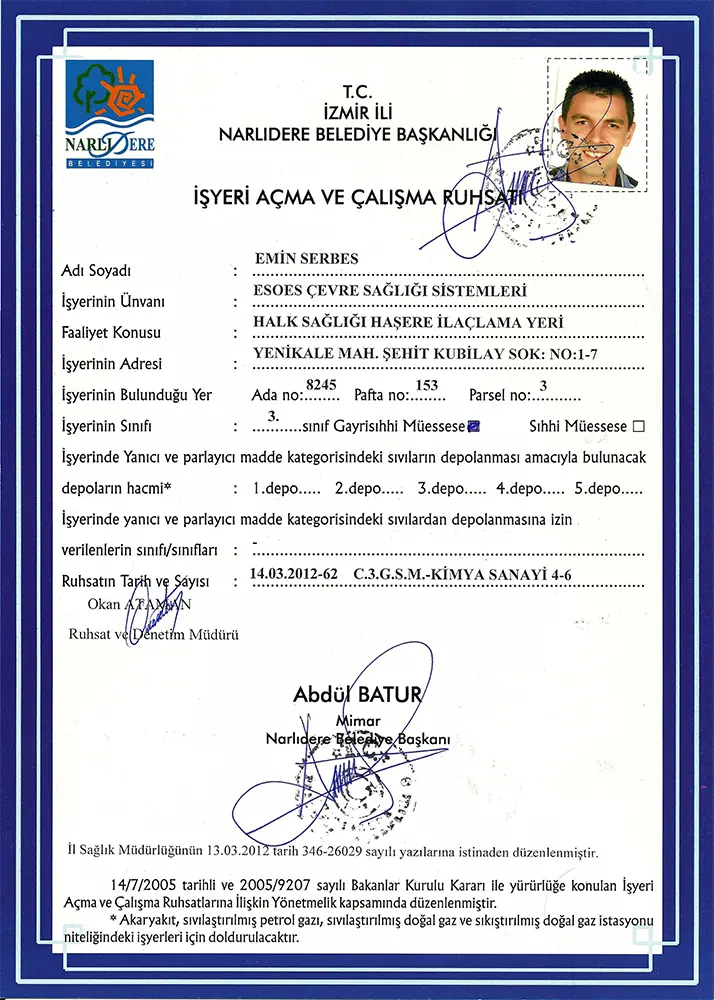 NARLIDERE
BELEDİYESİ
T.C.
İZMİR İLİ
NARLIDERE BELEDİYE BAŞKANLIĞI
İŞYERİ AÇMA VE ÇALIŞMA RUHSATI
Adı Soyadı : EMİN SERBES
İşyerinin Ünvanı : ESOES ÇEVRE SAĞLIĞI SİSTEMLERİ
Faaliyet Konusu : HALK SAĞLIĞI HAŞERE İLAÇLAMA YERİ
İşyerinin Adresi : YENİKALE MAH. ŞEHİT KUBİLAY SOK: NO:1-7
İşyerinin Bulunduğu Yer Ada no: 8245 Pafta no: 153 Parsel no: 3
İşyerinin Sınıfı : 3. sınıf Gayrisıhhi Müessese Sıhhi Müessese
İşyerinde Yanıcı ve parlayıcı madde kategorisindeki sıvıların depolanması amacıyla bulunacak
depoların hacmi* : 1.depo..... 2.depo..... 3.depo..... 4.depo..... 5.depo.....
İşyerinde yanıcı ve parlayıcı madde kategorisindeki sıvılardan depolanmasına izin
verilenlerin sınıfı/sınıfları : -
Ruhsatın Tarih ve Sayısı : 14.03.2012-62 C.3.G.S.M.-KİMYA SANAYİ 4-6
Okan ATAMAN
Ruhsat ve Denetim Müdürü
Abdül BATUR
Mimar
Narlıdere Belediye Başkanı
İl Sağlık Müdürlüğünün 13.03.2012 tarih 346-26029 sayılı yazılarına istinaden düzenlenmiştir.
14/7/2005 tarihli ve 2005/9207 sayılı Bakanlar Kurulu Kararı ile yürürlüğe konulan İşyeri
Açma ve Çalışma Ruhsatlarına İlişkin Yönetmelik kapsamında düzenlenmiştir.
* Akaryakıt, sıvılaştırılmış petrol gazı, sıvılaştırılmış doğal gaz ve sıkıştırılmış doğal gaz istasyonu
niteliğindeki işyerleri için doldurulacaktır.